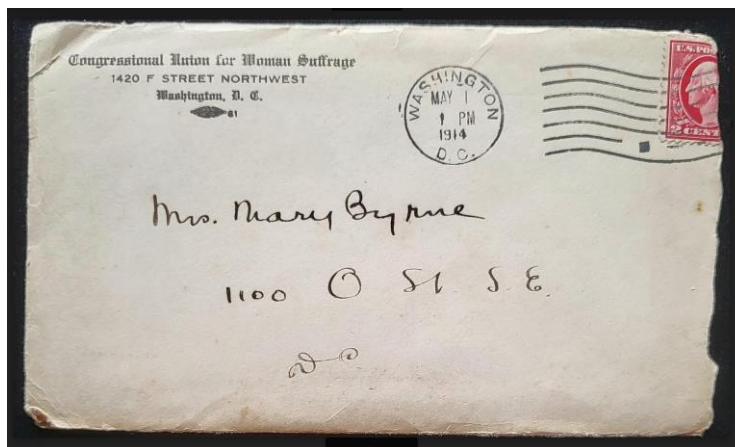 Congressional Union for Woman Suffrage
1420 F STREET NORTHWEST
Washington, D. C.
81
WASHINGTON
MAY 1
1 PM
1914
D. C.
U.S. PO
2 CENT
Mrs. Mary Byrne
1100 O St. S. E.
D C